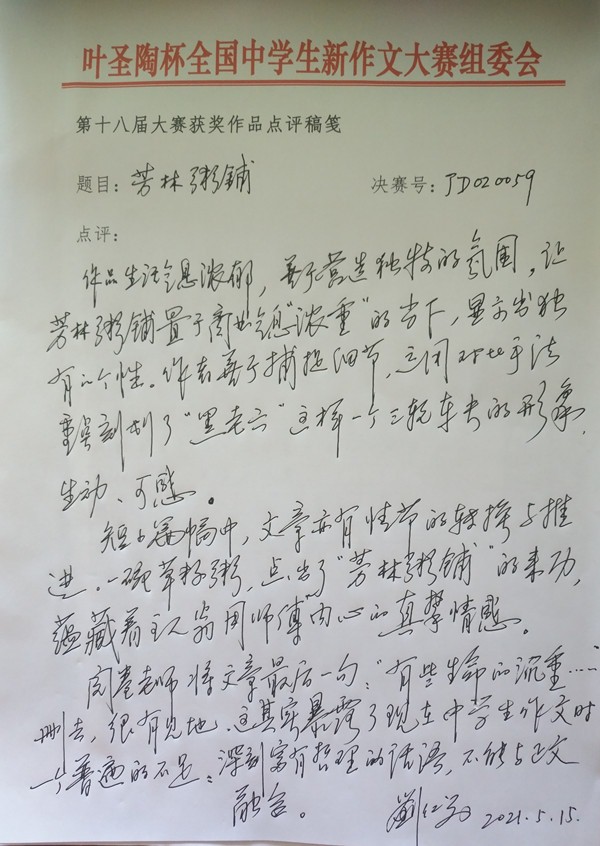 叶圣陶杯全国中学生新作文大赛组委会
第十八届大赛获奖作品点评稿笺
题目：芳林粥铺 决赛号：JD020059
点评：
作品生活气息浓郁，善于营造独特的氛围，让
芳林粥铺置于商业气息"浓重"的当下，显示出独
有的个性。作者善于捕捉细节，运用对比手法
重点刻划了"黑老六"这样一个三轮车夫的形象，
生动、可感。
短小篇幅中，文章亦有情节的转换与推
进。一碗草籽粥，点出了"芳林粥铺"的来历，
蕴藏着主人翁周师傅内心的真挚情感。
阅卷老师将文章最后一句："有些生命的沉重……
删去，很有见地。这其实暴露了现在中学生作文时
一个普遍的不足：深刻富有哲理的话语，不能与正文
融合。
2021.5.15.